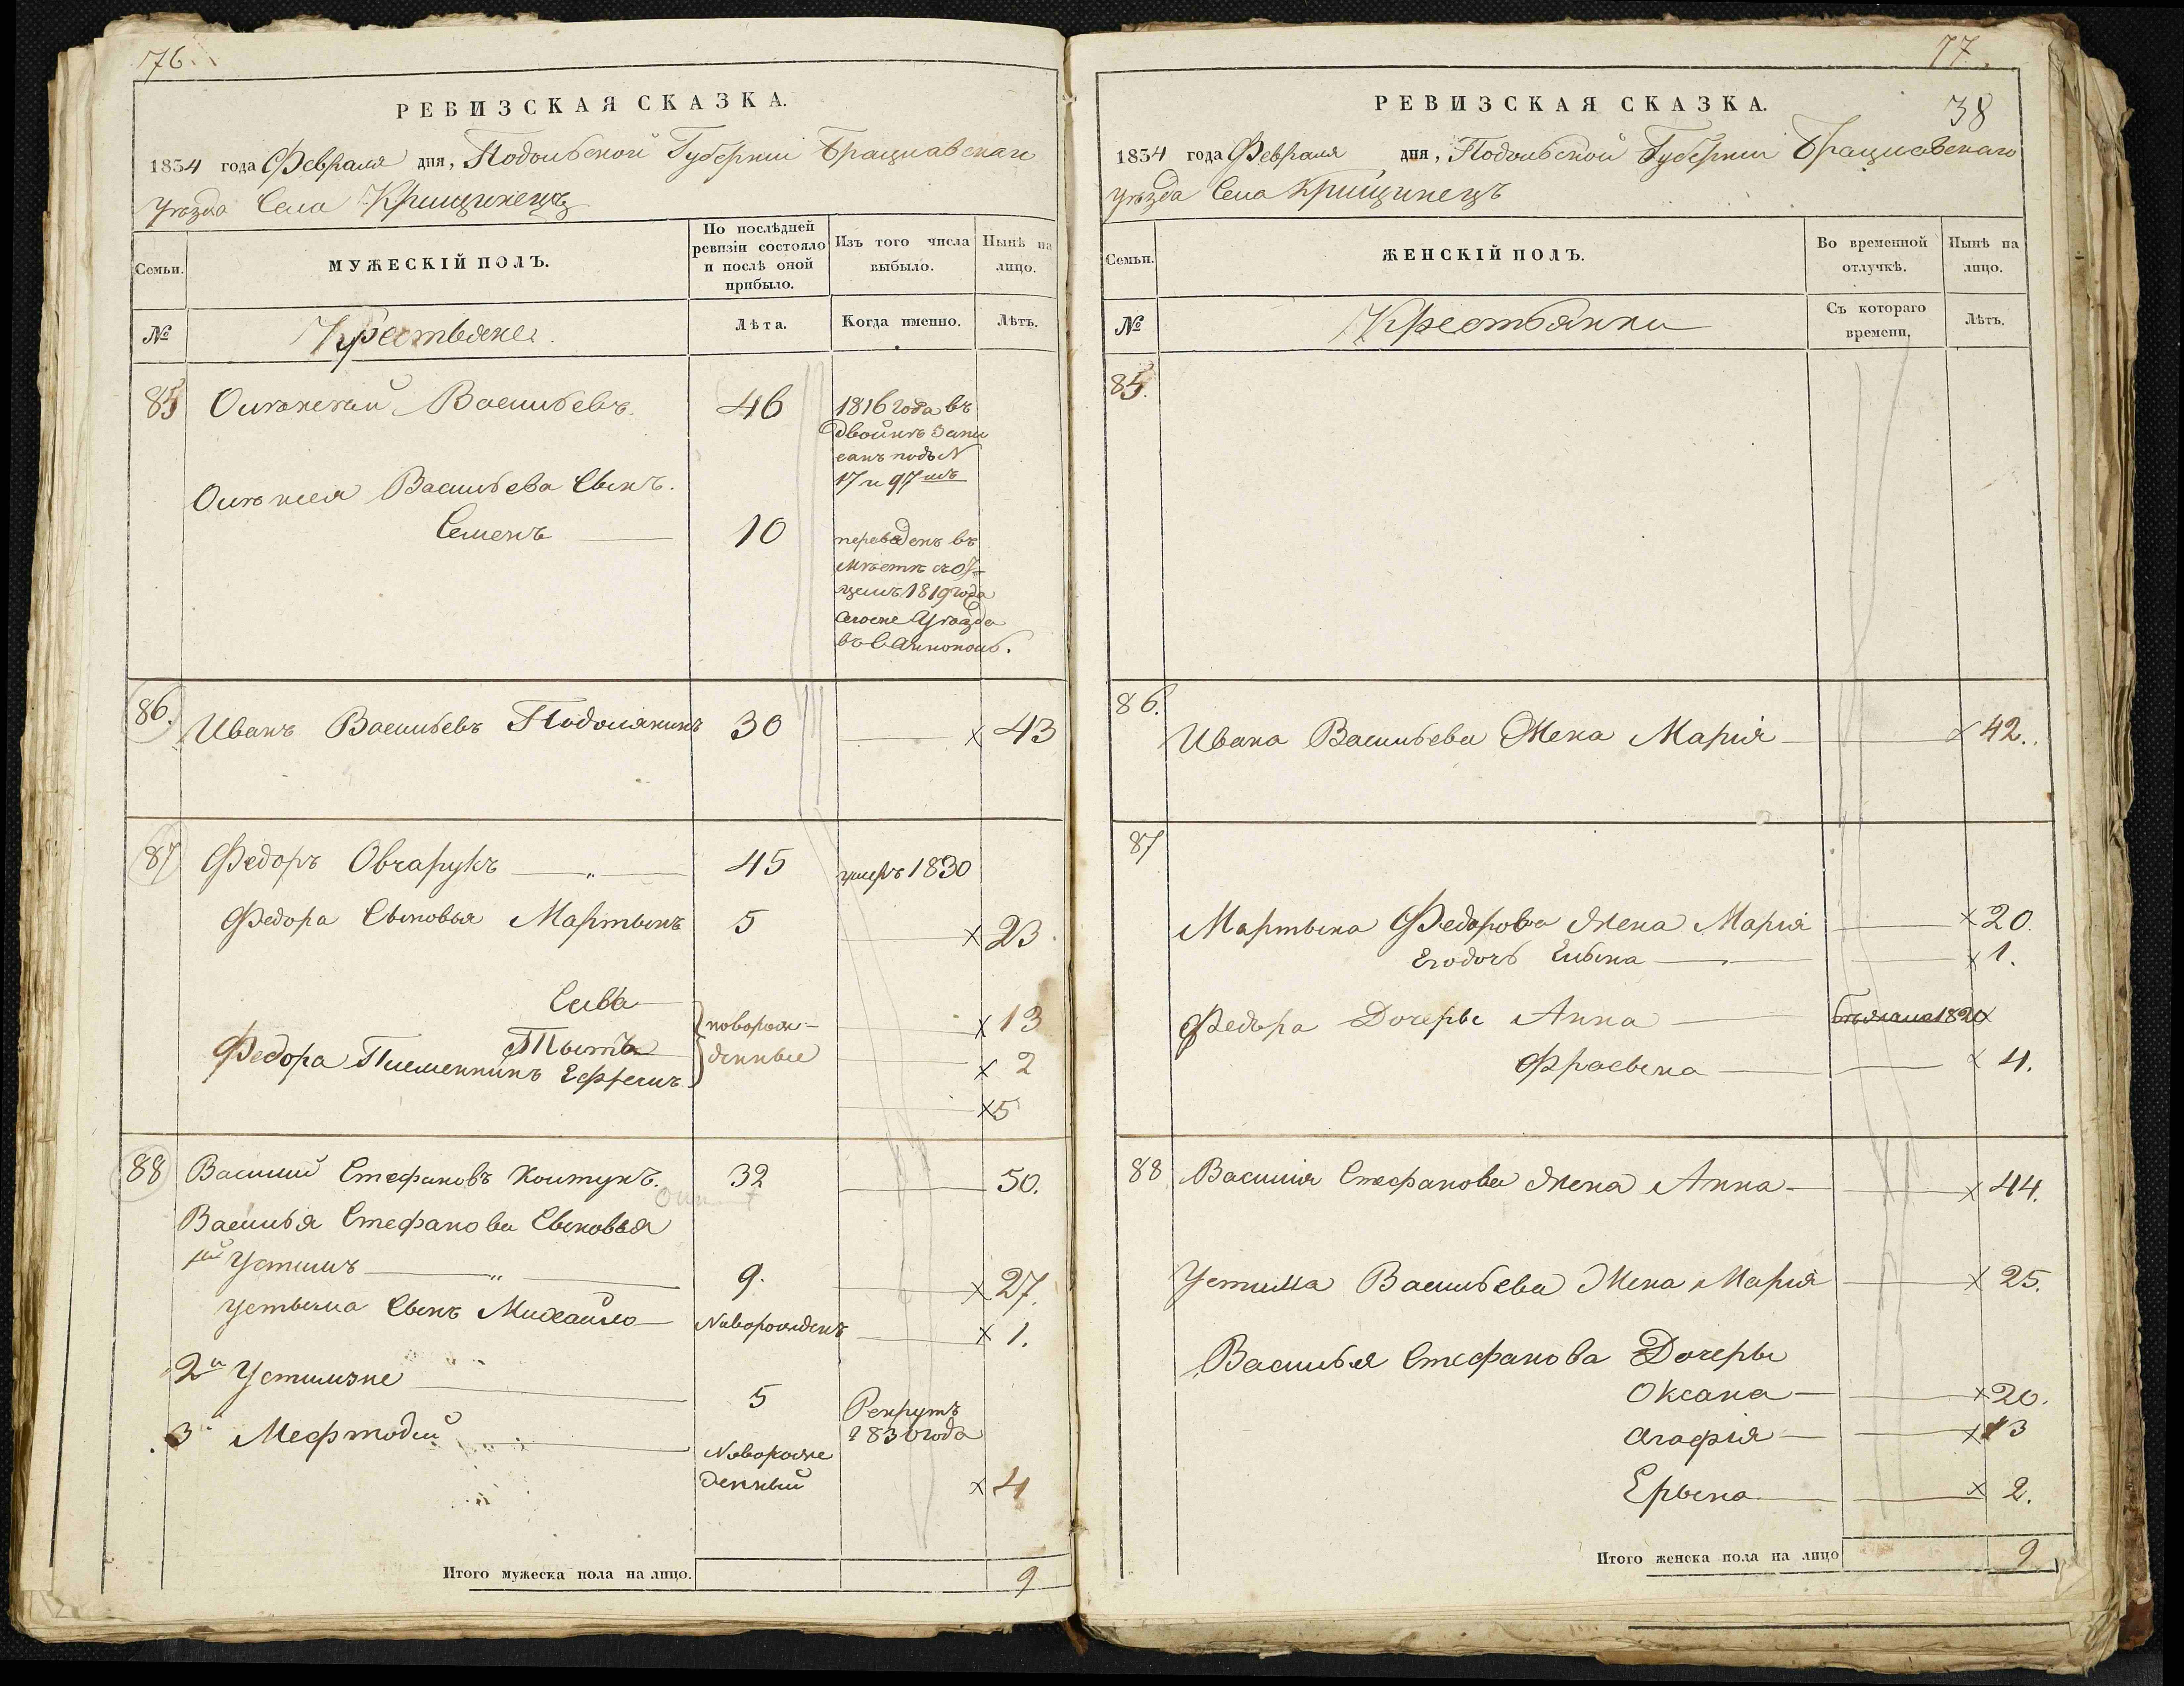 76.
РЕВИЗСКАЯ СКАЗКА.
1834 года Февраля дня, Подольской Губерніи Брацлавскаго
уѣзда Села Крищинецъ
Семьи.
МУЖЕСКІЙ ПОЛЪ.
По послѣдней
ревизіи состояло
и послѣ оной
прибыло.
Изъ того числа
выбыло.
Нынѣ на
лицо.
№
Крестьяне.
Лѣта.
Когда именно.
Лѣтъ.
85 Васильевъ 46
1816 года въ
двойнѣ запи
санъ подъ N
17 и 97 мъ
Васильева Сынъ.
Семенъ 10
переведенъ въ
мѣстѣ съ От-
цемъ 1819 года
Уѣзда
86. Иванъ Васильевъ Подолянинъ 30 х 43
87 Федоръ Овчарукъ 45 умеръ 1830
Федора Сыновья Мартынъ 5 х 23
Сава х 13
новорож-
денные
х 2
Федора Племенникъ Ефремъ
х 5
88 Василий Стефановъ Колтунъ. 32 50.
Василья Стефанова Сыновья
1й Устимъ 9. х 27.
Устыма Сынъ Михайло Новорожденъ х 1.
2й 5
Рекрутъ
1830 года
3й Мефтодий
Новорож
денный х 4
Итого мужеска пола на лицо. 9
77.
38
РЕВИЗСКАЯ СКАЗКА.
1834 года Февраля дня, Подольской Губерніи Брацлавскаго
уѣзда Села Крищинецъ
Семьи.
ЖЕНСКІЙ ПОЛЪ.
Во временной
отлучкѣ.
Нынѣ на
лицо.
№
Крестьянки
Съ котораго
времени.
Лѣтъ.
85.
86.
Ивана Васильева Жена Марія х 42.
87
Мартына Федорова Жена Марія х 20.
Его дочь х 1.
Федора Дочеры Анна
х 4.
88 Василія Стефанова Жена Анна х 44.
Устима Васильева Жена Марія х 25.
Василья Стефанова Дочеры
Оксана х 20.
Агафія х 13
Ерына х 2.
Итого женска пола на лицо 9